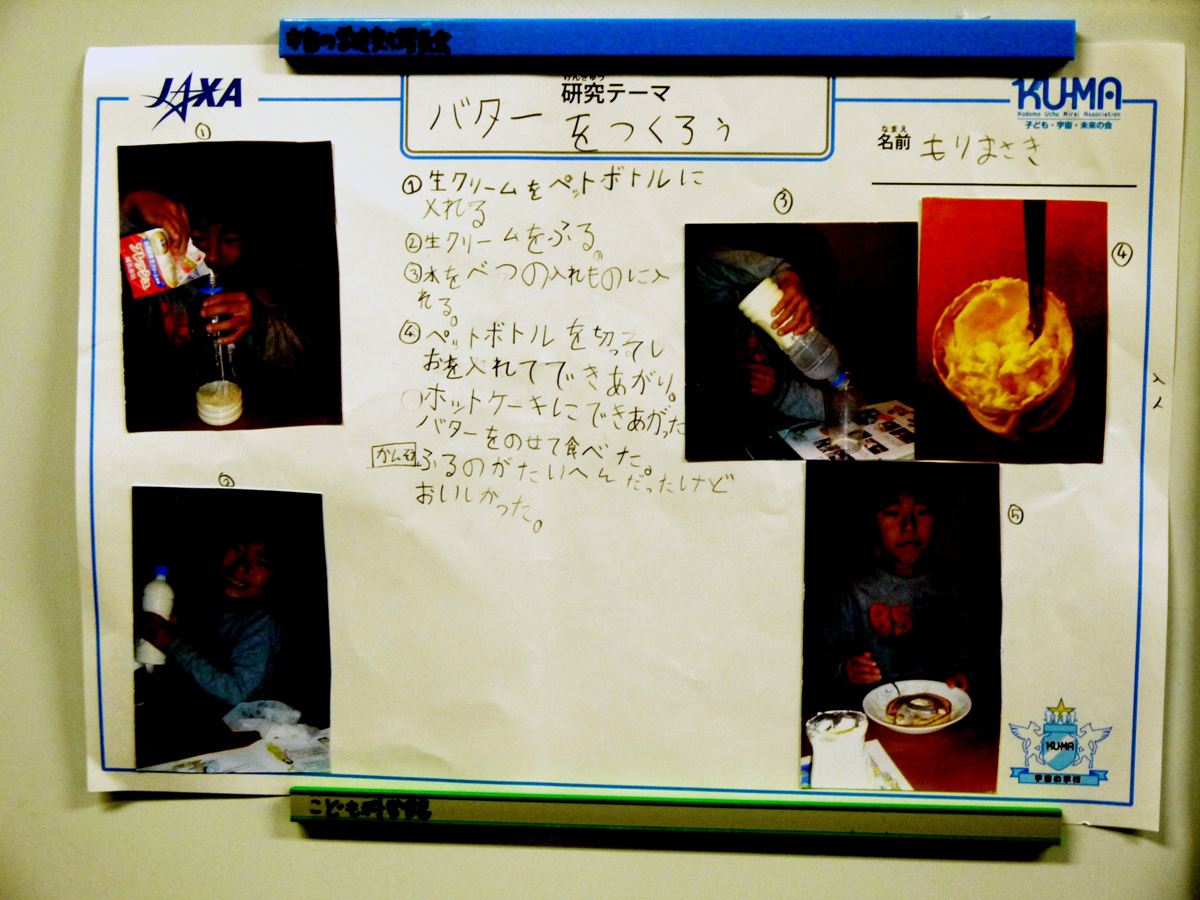 JAXA
けんきゅう
研究テーマ
バター
をつくろう
KU-MA
Kodomo Uchu Mirai Association
子ども・宇宙・未来の会
なまえ
名前 もりまさき
①
①生クリームをペットボトルに
入れる
②生クリームをふる。
③水をべつの入れものに入
れる。
④ペットボトルを切ってし
おを入れてできあがり。
○ホットケーキにできあがった
バターをのせて食べた。
かんそう ふるのがたいへんだったけど
おいしかった。
②
③
④
⑤
フレッシュ
85
KU-MA
宇宙の学校